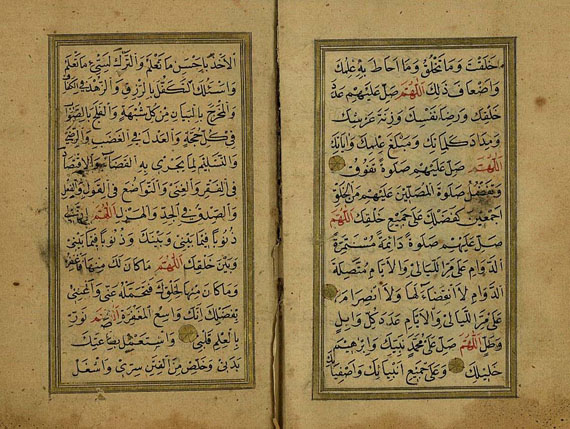 خلقت وما تخلق وما احاط به علمك
واضعاف ذلك اللهم صل عليهم عدد
خلقك ورضاء نفسك وزنة عرشك
ومداد كلماتك ومبلغ علمك واياتك
اللهم صل عليهم صلوة تفوق
وتفضل صلوة المصلين عليهم من الخلق
اجمعين كفضلك على جميع خلقك اللهم
صل عليهم صلوة دائمة مستمرة
الدوام على مر الليالي والايام متصلة
الدوام لا انقضاء لها ولا انصرام
على مر الليالي والايام عدد كل وابل
وطل اللهم صل على محمد نبيك وابرهيم
خليلك وعلى جميع انبيائك واصفيائك
الاخذ باحسن ما تعلم والترك لسيئ ما تعلم
واسئلك التكفل بالرزق والزهد في الكفاف
والمخرج بالبيان من كل شبهة والفلج بالصواب
في كل حجة والعدل في الغضب والرضاء
والتسليم لما يجري به القضاء والاقتصاد
في الفقر والغنى والتواضع في القول والفعل
والصدق في الجد والهزل اللهم ان لي
ذنوبا فيما بيني وبينك وذنوبا فيما بيني
وبين خلقك اللهم ما كان لك منها فاغفره
وما كان منها لخلقك فتحمله عني واغنني
بفضلك انك واسع المغفرة اللهم نور
بالعلم قلبي واستعمل بطاعتك
بدني وخلص من الفتن سري واشغل